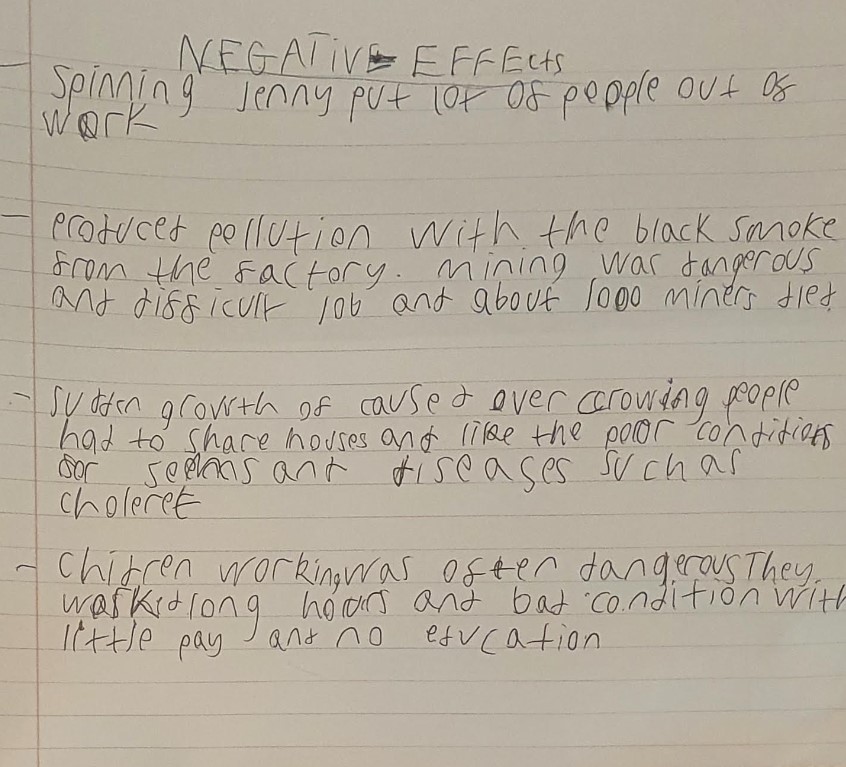 NEGATIVE EFFEcts
- Spinning Jenny put lot of people out of
work
- produced pollution with the black smoke
from the factory. mining was dangerous
and difficult job and about 1000 miners died
- sudden growth of caused over crowding people
had to share houses and like the poor conditions
for and diseases such as
cholere
- Children working was often dangerous They
worked long hours and bad condition with
little pay and no education